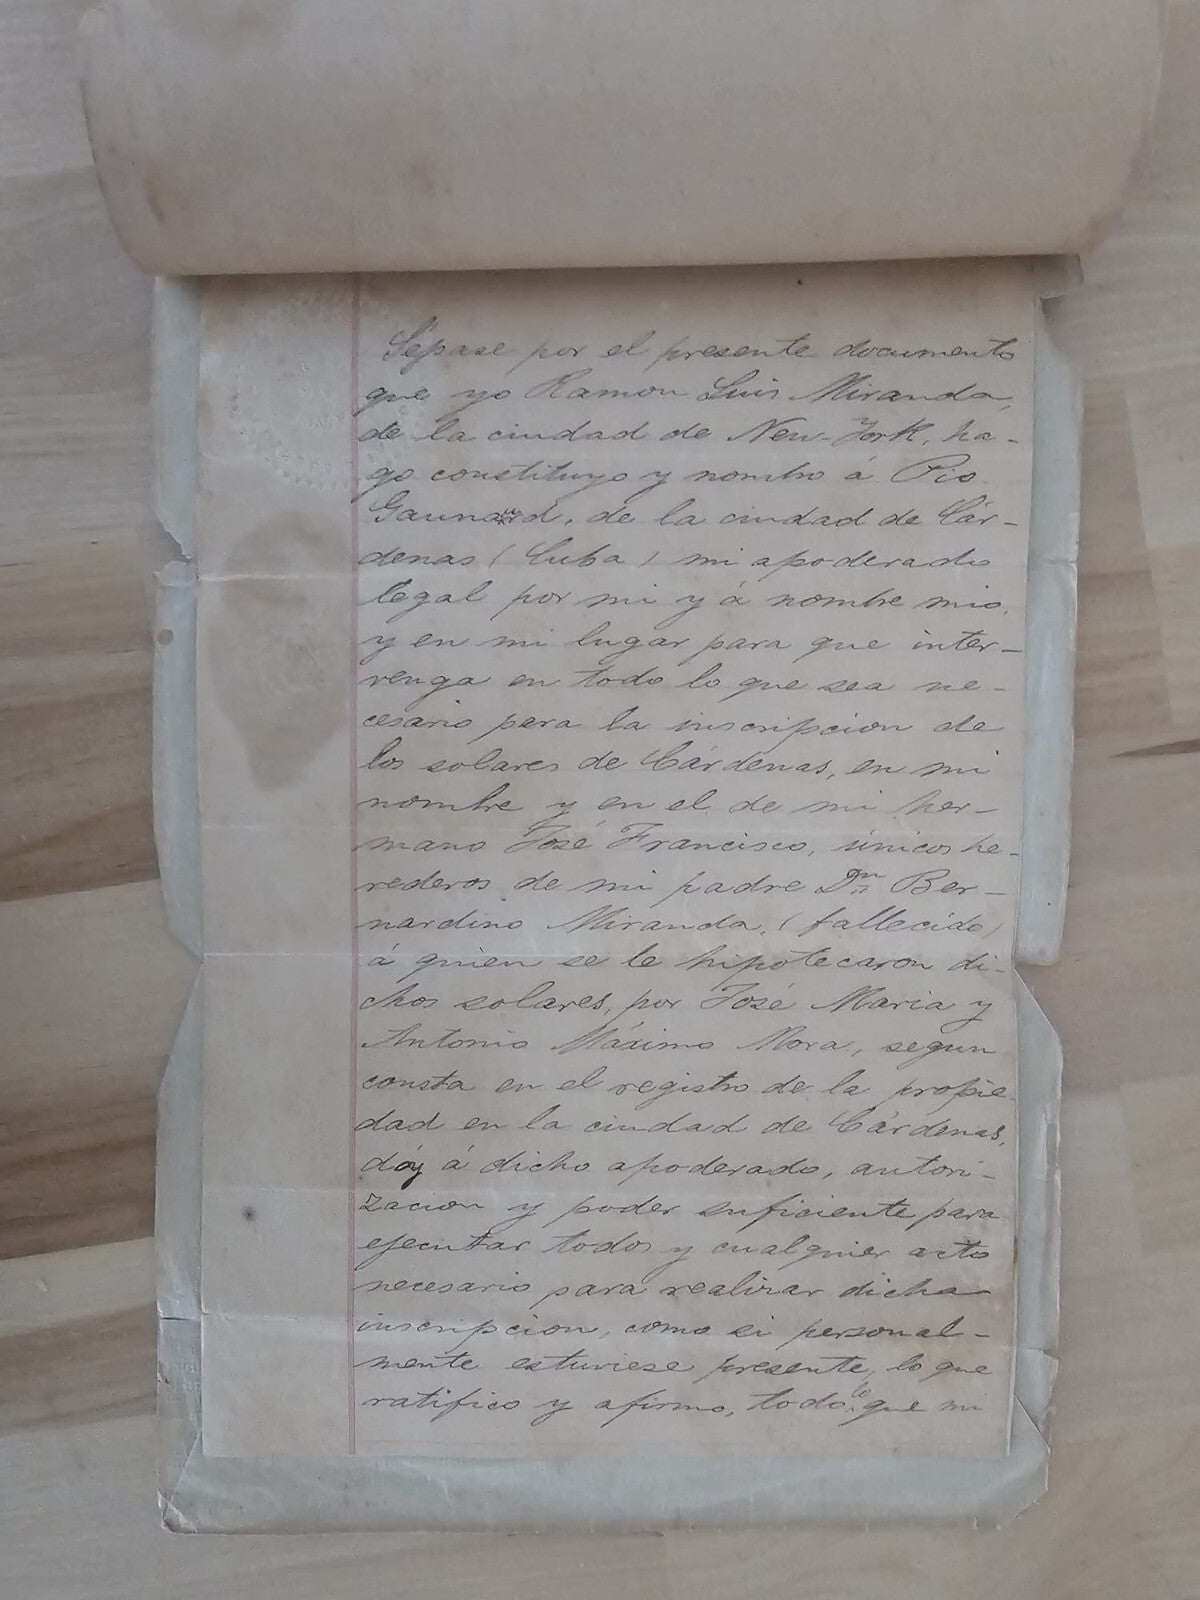 Sépase por el presente documento
que yo Ramon Luis Miranda,
de la ciudad de New-York, ha-
go constituyo y nombro á Pio
Gaunaurd, de la ciudad de Cár-
denas (Cuba) mi apoderado
legal por mi y á nombre mio,
y en mi lugar para que inter-
venga en todo lo que sea ne-
cesario para la inscripcion de
los solares de Cárdenas, en mi
nombre y en el de mi her-
mano José Francisco, únicos he-
rederos de mi padre Dn Ber-
nardino Miranda, (fallecido)
á quien se le hipotecaron di-
chos solares, por José Maria y
Antonio Máximo Mora, segun
consta en el registro de la propie-
dad en la ciudad de Cárdenas,
doy á dicho apoderado, autori-
zacion y poder suficiente para
ejecutar todos y cualquier acto
necesario para realizar dicha
inscripcion, como si personal-
mente estuviese presente, lo que
ratifico y afirmo, todo lo que mi